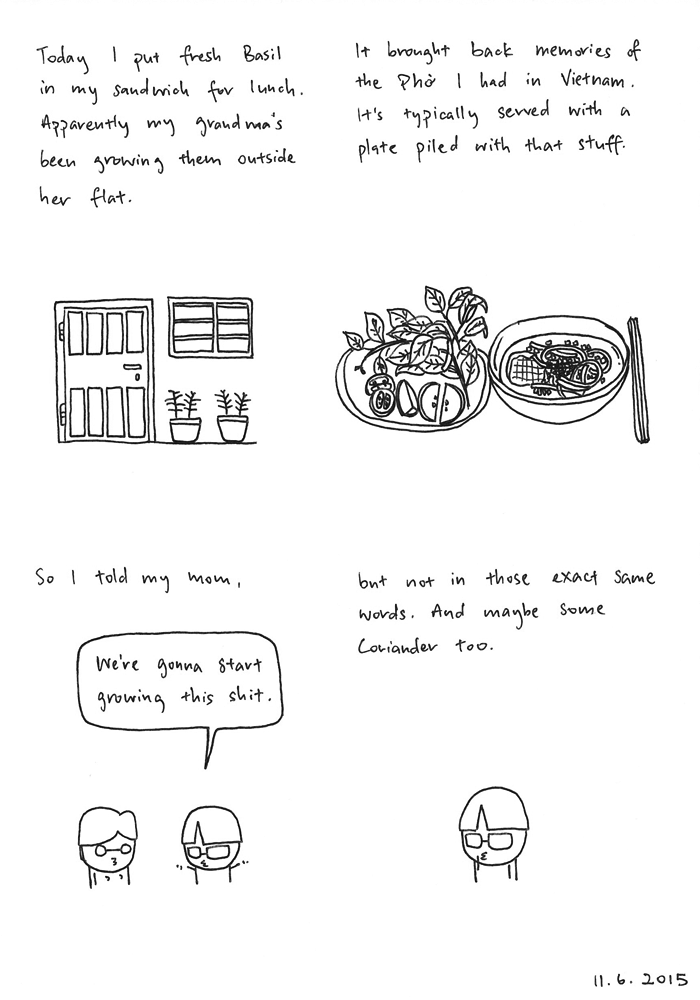 Today I put fresh Basil
in my sandwich for lunch.
Apparently my grandma's
been growing them outside
her flat.
It brought back memories of
the Phở I had in Vietnam.
It's typically served with a
plate piled with that stuff.
So I told my mom,
We're gonna start
growing this shit.
but not in those exact same
words. And maybe some
Coriander too.
11.6.2015